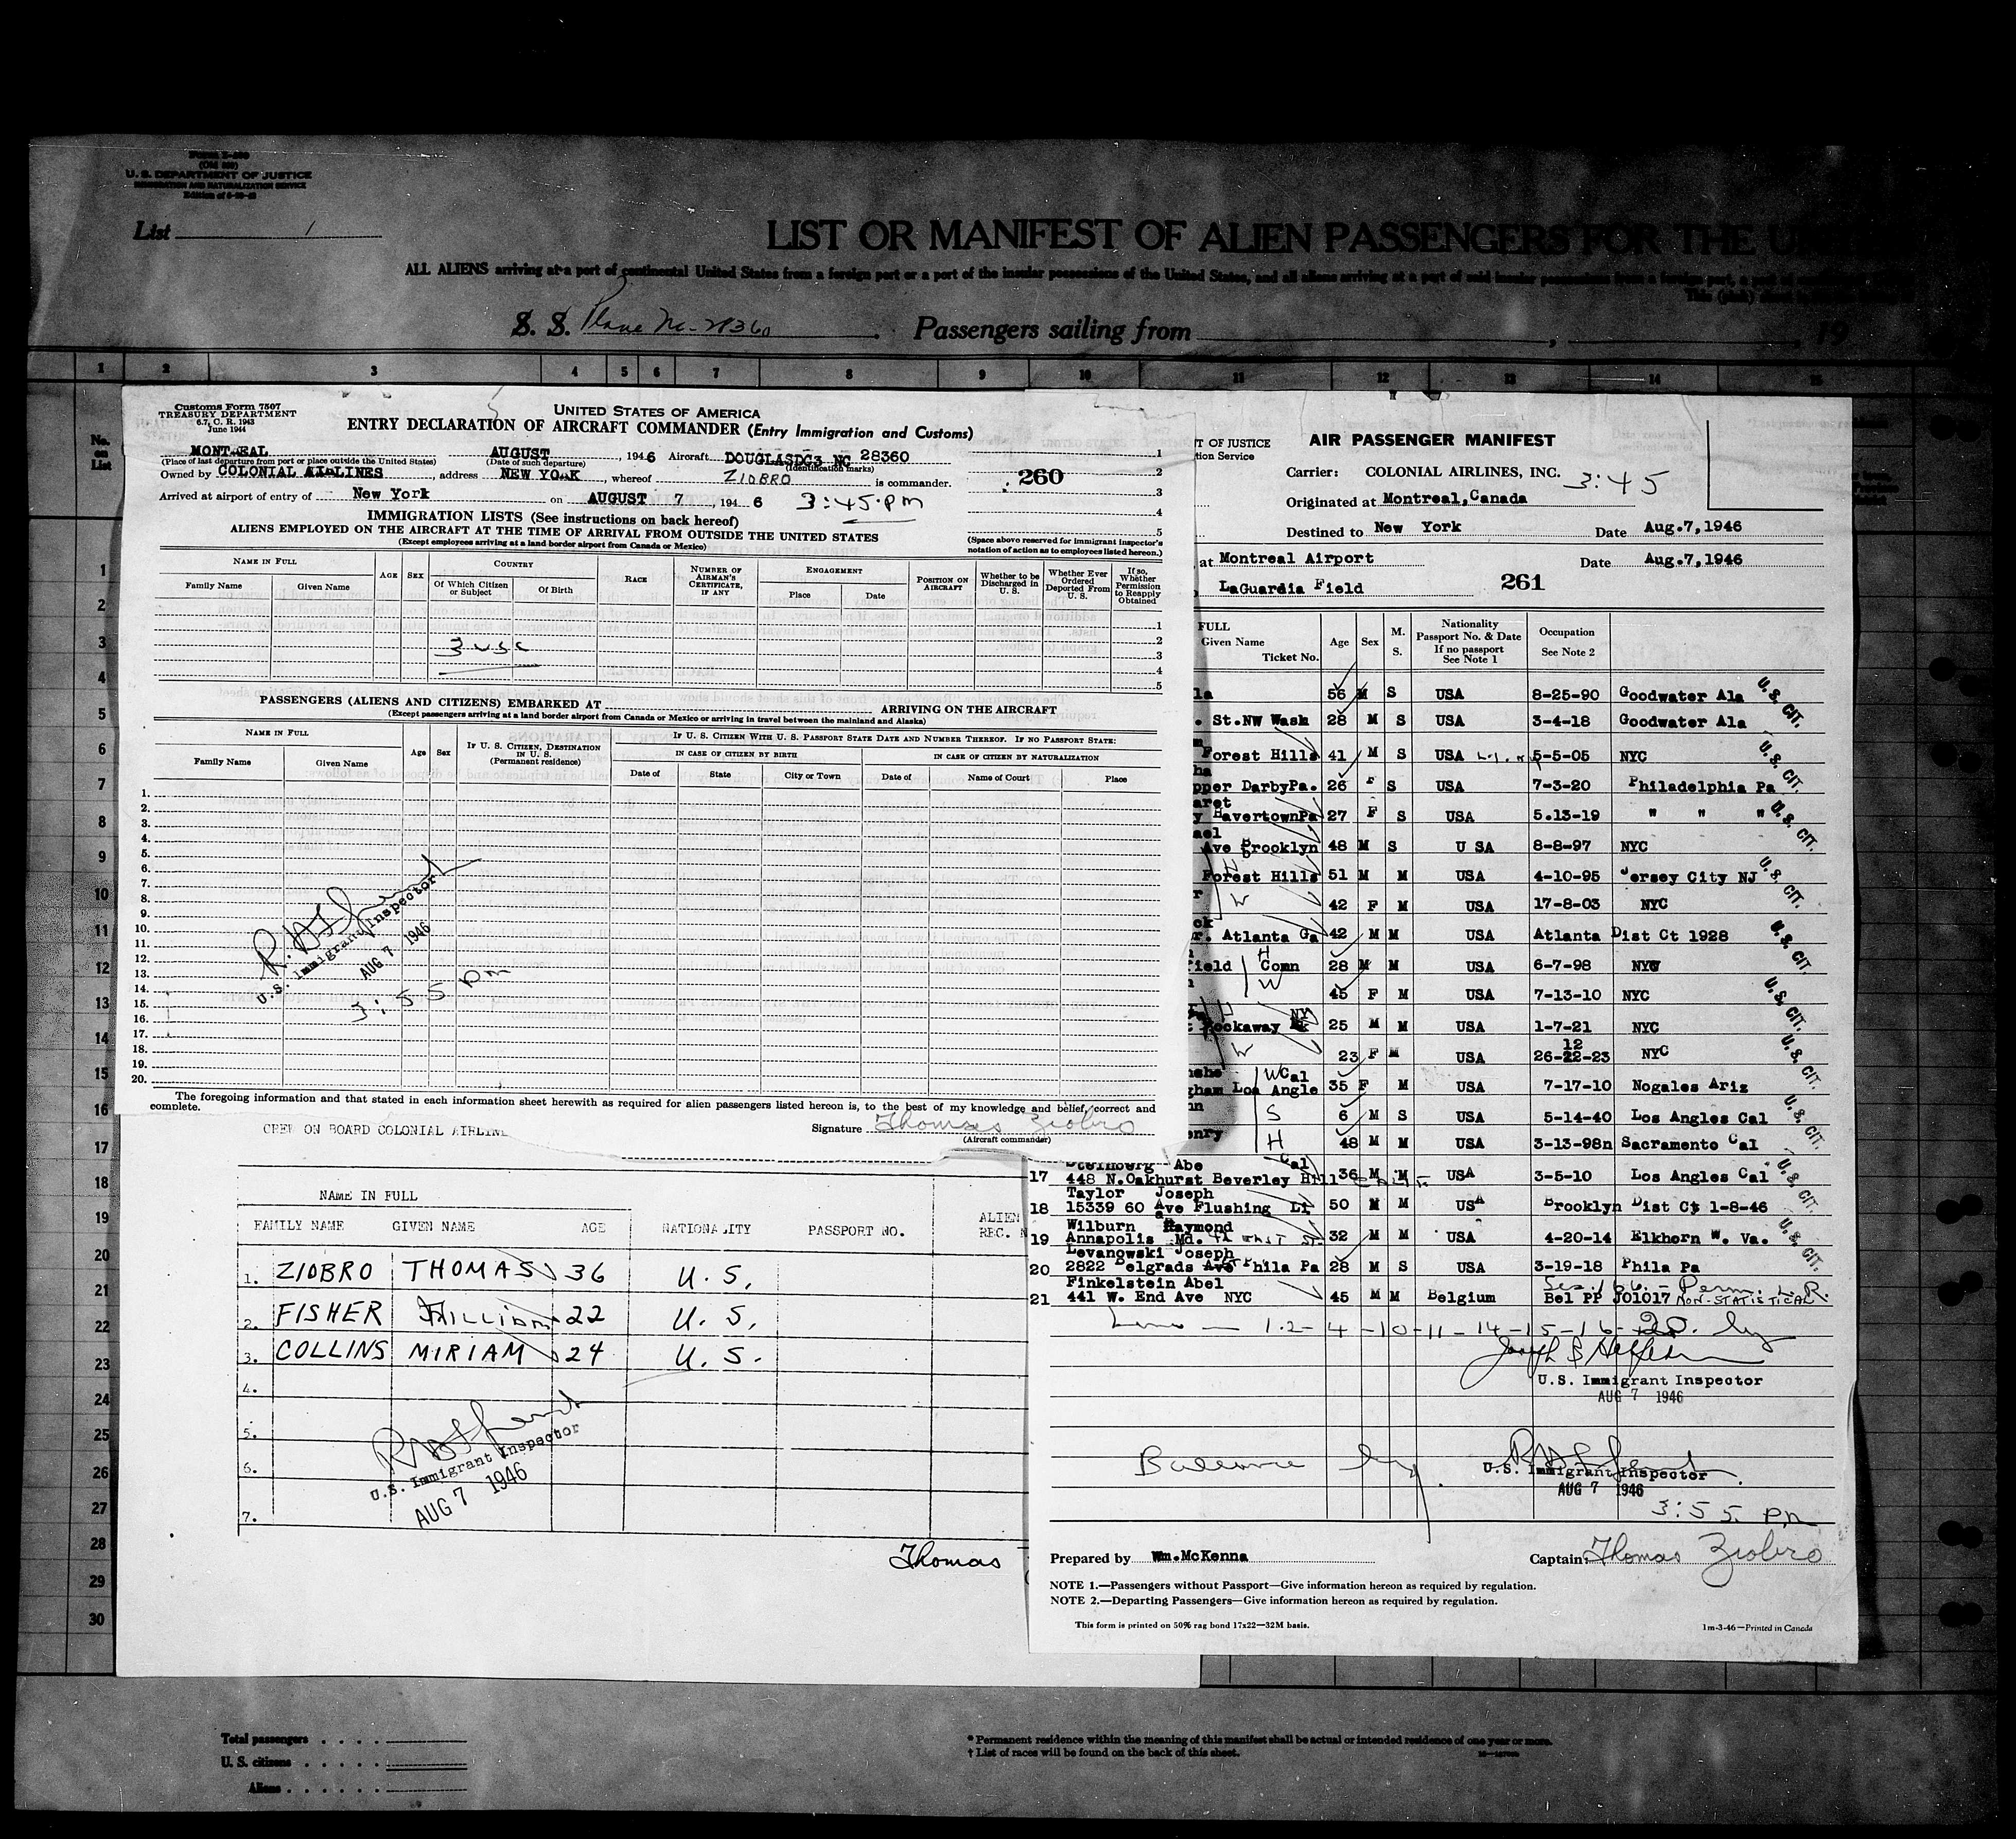 U. S. DEPARTMENT OF JUSTICE
IMMIGRATION AND NATURALIZATION SERVICE
List 1
LIST OR MANIFEST OF ALIEN PASSENGERS FOR THE
ALL ALIENS arriving at a port of continental United States from a foreign port or a port of the insular possessions of the United States, and all aliens arriving at a port of said insular possessions from a foreign port, a port of
S. S. Plane Nc-28360 Passengers sailing from , 19
1 2 3 4 5 6 7 8 9 10 11 12 13 14 15
No. on List
1
2
3
4
5
6
7
8
9
10
11
12
13
14
15
16
17
18
19
20
21
22
23
24
25
26
27
28
29
30
Customs Form 7507
TREASURY DEPARTMENT
6.7, C. R. 1943
June 1944
UNITED STATES OF AMERICA
ENTRY DECLARATION OF AIRCRAFT COMMANDER (Entry Immigration and Customs)
MONTREAL AUGUST , 1946 Aircraft DOUGLASDC3 NC 28360
(Place of last departure from port or place outside the United States) (Date of such departure) (Identification marks)
Owned by COLONIAL AIRLINES , address NEW YORK , whereof ZIOBRO is commander.
Arrived at airport of entry of New York on AUGUST 7 , 1946 3:45 PM
260
1
2
3
4
5
(Space above reserved for immigrant inspector's notation of action as to employees listed hereon.)
IMMIGRATION LISTS (See instructions on back hereof)
ALIENS EMPLOYED ON THE AIRCRAFT AT THE TIME OF ARRIVAL FROM OUTSIDE THE UNITED STATES
(Except employees arriving at a land border airport from Canada or Mexico)
NAME IN FULL AGE SEX COUNTRY RACE NUMBER OF AIRMAN'S CERTIFICATE, IF ANY ENGAGEMENT POSITION ON AIRCRAFT Whether to be Discharged in U. S. Whether Ever Ordered Deported From U. S. If so, Whether Permission to Reapply Obtained
Family Name Given Name Of Which Citizen or Subject Of Birth Place Date
3 usc
1
2
3
4
5
PASSENGERS (ALIENS AND CITIZENS) EMBARKED AT ARRIVING ON THE AIRCRAFT
(Except passengers arriving at a land border airport from Canada or Mexico or arriving in travel between the mainland and Alaska)
NAME IN FULL Age Sex IF U. S. CITIZEN, DESTINATION IN U. S. (Permanent residence) IF U. S. CITIZEN WITH U. S. PASSPORT STATE DATE AND NUMBER THEREOF. IF NO PASSPORT STATE:
IN CASE OF CITIZEN BY BIRTH IN CASE OF CITIZEN BY NATURALIZATION
Family Name Given Name Date of State City or Town Date of Name of Court Place
1.
2.
3.
4.
5.
6.
7.
8.
9.
10.
11.
12.
13.
14.
15.
16.
17.
18.
19.
20.
U.S. Immigrant Inspector
AUG 7 1946
3:55 pm
The foregoing information and that stated in each information sheet herewith as required for alien passengers listed hereon is, to the best of my knowledge and belief, correct and complete.
Signature Thomas Ziobro
(Aircraft commander)
CREW ON BOARD COLONIAL AIRLINE
NAME IN FULL
FAMILY NAME GIVEN NAME AGE NATIONALITY PASSPORT NO. ALIEN REC. N
1. ZIOBRO THOMAS 36 U. S.
2. FISHER WILLIAM 22 U. S.
3. COLLINS MIRIAM 24 U. S.
4.
5.
6.
7.
U.S. Immigrant Inspector
AUG 7 1946
Thomas
T OF JUSTICE
tion Service
AIR PASSENGER MANIFEST
Carrier: COLONIAL AIRLINES, INC. 3:45
Originated at Montreal,Canada
Destined to New York Date Aug.7,1946
at Montreal Airport Date Aug.7,1946
LaGuardia Field 261
FULL
Given Name Ticket No. Age Sex M. S. Nationality Passport No. & Date If no passport See Note 1 Occupation See Note 2
la 56 M S USA 8-25-90 Goodwater Ala U.S. CIT.
. St.NW Wash 28 M S USA 3-4-18 Goodwater Ala
Forest Hills 41 M S USA 5-5-05 NYC U.S. CIT.
pper DarbyPa. 26 F S USA 7-3-20 Philadelphia Pa
aret
y HavertownPa 27 F S USA 5.13-19 " " " U.S. CIT.
ael
Ave Brooklyn 48 M S U SA 8-8-97 NYC
Forest Hills 51 M M USA 4-10-95 Jersey City NJ U.S. CIT.
W 42 F M USA 17-8-03 NYC
ck
r. Atlanta Ga 42 M M USA Atlanta Dist Ct 1928 U.S. CIT.
ield Conn H 28 M M USA 6-7-98 NYC
W 45 F M USA 7-13-10 NYC U.S. CIT.
Rockaway NY 25 M M USA 1-7-21 NYC
W 23 F M USA 26-12-23 NYC U.S. CIT.
gham Los Angle Cal W 35 F M USA 7-17-10 Nogales Ariz
S 6 M S USA 5-14-40 Los Angles Cal U.S. CIT.
enry H 48 M M USA 3-13-98n Sacramento Cal
17 Steinberg Abe
448 N.Oakhurst Beverley Hill Cal 36 M M USA 3-5-10 Los Angles Cal U.S. CIT.
18 Taylor Joseph
15339 60 Ave Flushing LI 50 M M USA Brooklyn Dist Ct 1-8-46
19 Wilburn Raymond
Annapolis Md. 32 M M USA 4-20-14 Elkhorn W. Va. U.S. CIT.
20 Levanowski Joseph
2822 Belgrads Ave Phila Pa 28 M S USA 3-19-18 Phila Pa
21 Finkelstein Abel
441 W. End Ave NYC 45 M M Belgium Bel PP J01017 NON-STATISTICAL
1-2-4-10-11-14-15-16-20. by
U.S. Immigrant Inspector
AUG 7 1946
Balance by
U.S. Immigrant Inspector
AUG 7 1946
3:55 PM
Prepared by Wm.McKenna Captain: Thomas Ziobro
NOTE 1.—Passengers without Passport—Give information hereon as required by regulation.
NOTE 2.—Departing Passengers—Give information hereon as required by regulation.
This form is printed on 50% rag bond 17x22—32M basis. 1m-3-46—Printed in Canada
Total passengers
U. S. citizens
Aliens
* Permanent residence within the meaning of this manifest shall be actual or intended residence of one year or more.
† List of races will be found on the back of this sheet.